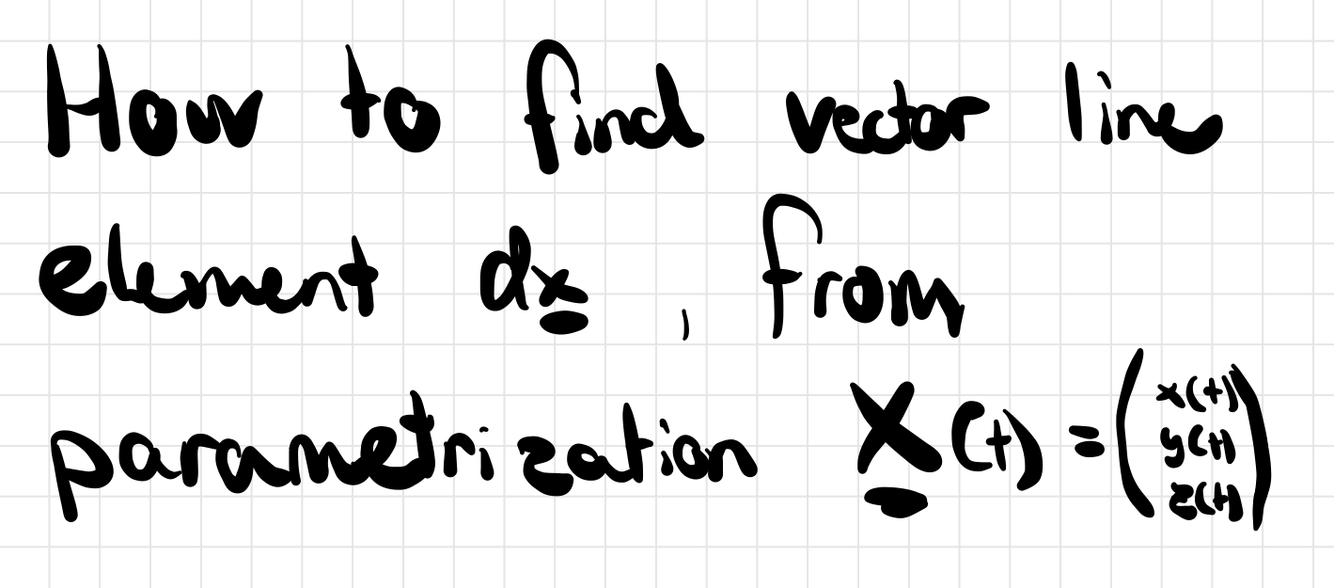 How to find vector line
element dx̲, from
parametrization X̲(t) = (x(t) y(t) z(t))